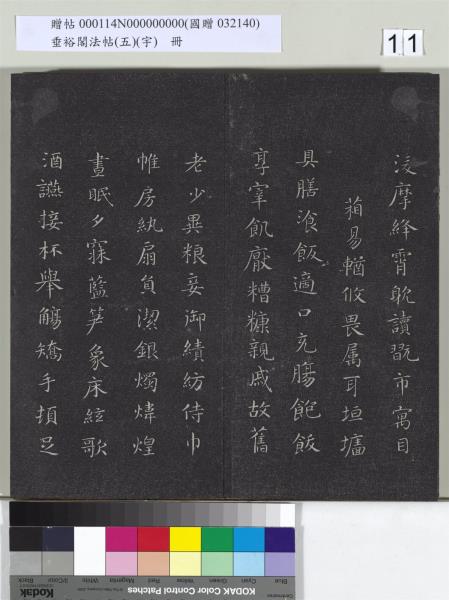 贈帖 000114N000000000(國贈 032140)
垂裕閣法帖(五)(宇) 冊
11
淩摩絳霄耽讀翫市寓目
箱易輶攸畏属耳垣墻
具膳飡飯適口充膓飽飫
享宰飢厭糟糠親戚故舊
老少異粮妾御績紡侍巾
帷房紈扇負潔銀燭煒煌
晝眠夕寐藍笋象床絃歌
酒讌接杯舉觴矯手頓足
Blue
Cyan
Green
Yellow
Red
Magenta
White
3/Color
Black
KODAK Color Control Patches
Kodak